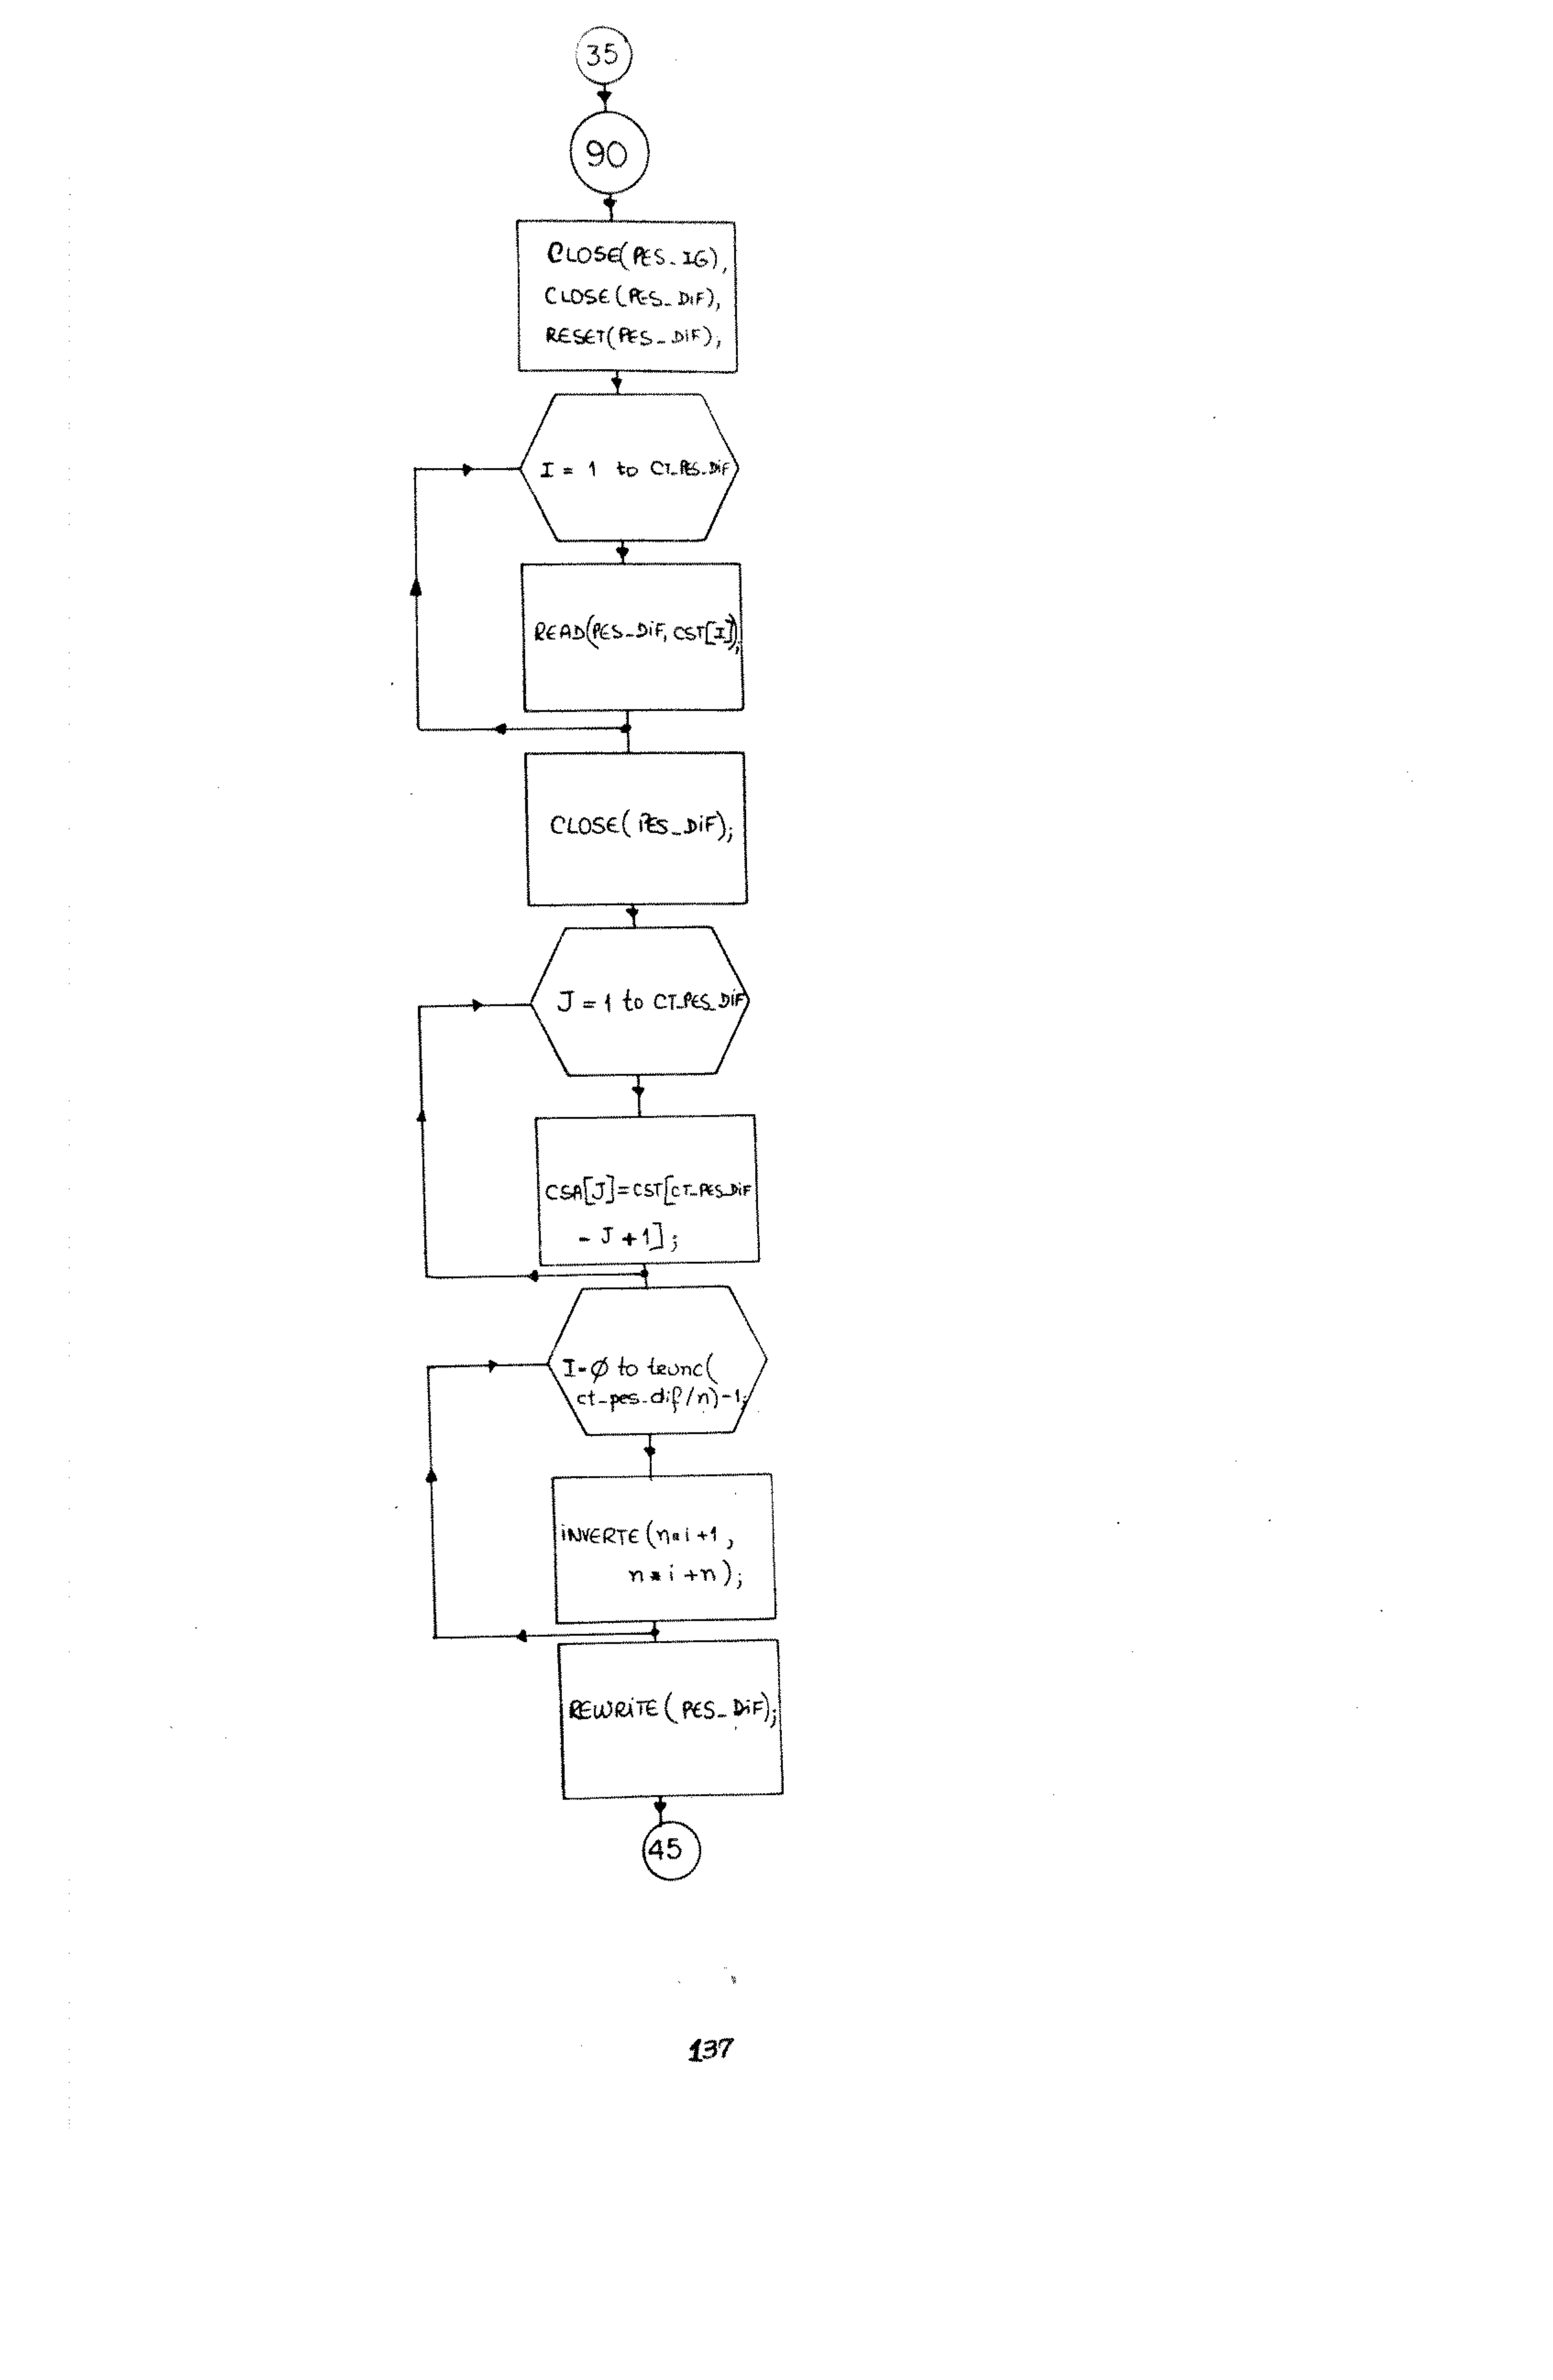 35
90
CLOSE(PES_IG),
CLOSE(PES_DIF),
RESET(PES_DIF);
I = 1 to CT_PES_DIF
READ(PES_DIF, CST[I]);
CLOSE(PES_DIF);
J = 1 to CT_PES_DIF
CSA[J]=CST[CT_PES_DIF
- J +1];
I-Ø to trunc(
ct_pes_dif/n)-1;
INVERTE(n*i+1,
n*i+n);
REWRITE(PES_DIF);
45
137